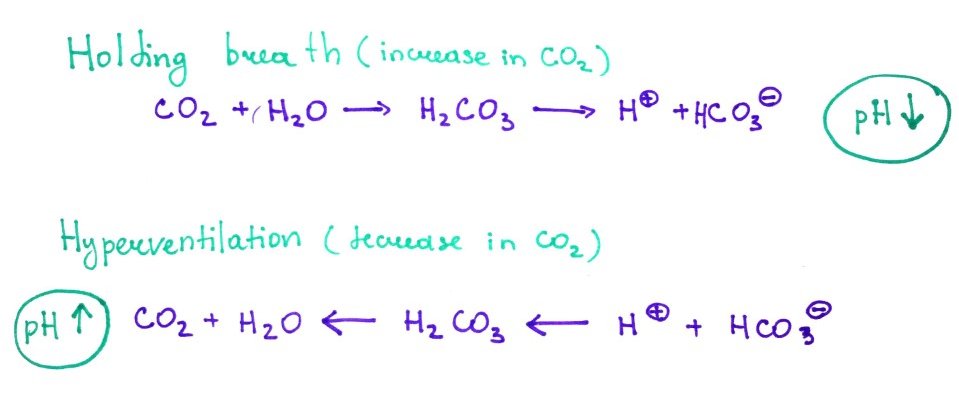 Holding breath (increase in CO₂)
CO₂ + H₂O → H₂CO₃ → H⊕ + HCO₃⊖ pH ↓
Hyperventilation (decrease in CO₂)
pH ↑ CO₂ + H₂O ← H₂CO₃ ← H⊕ + HCO₃⊖